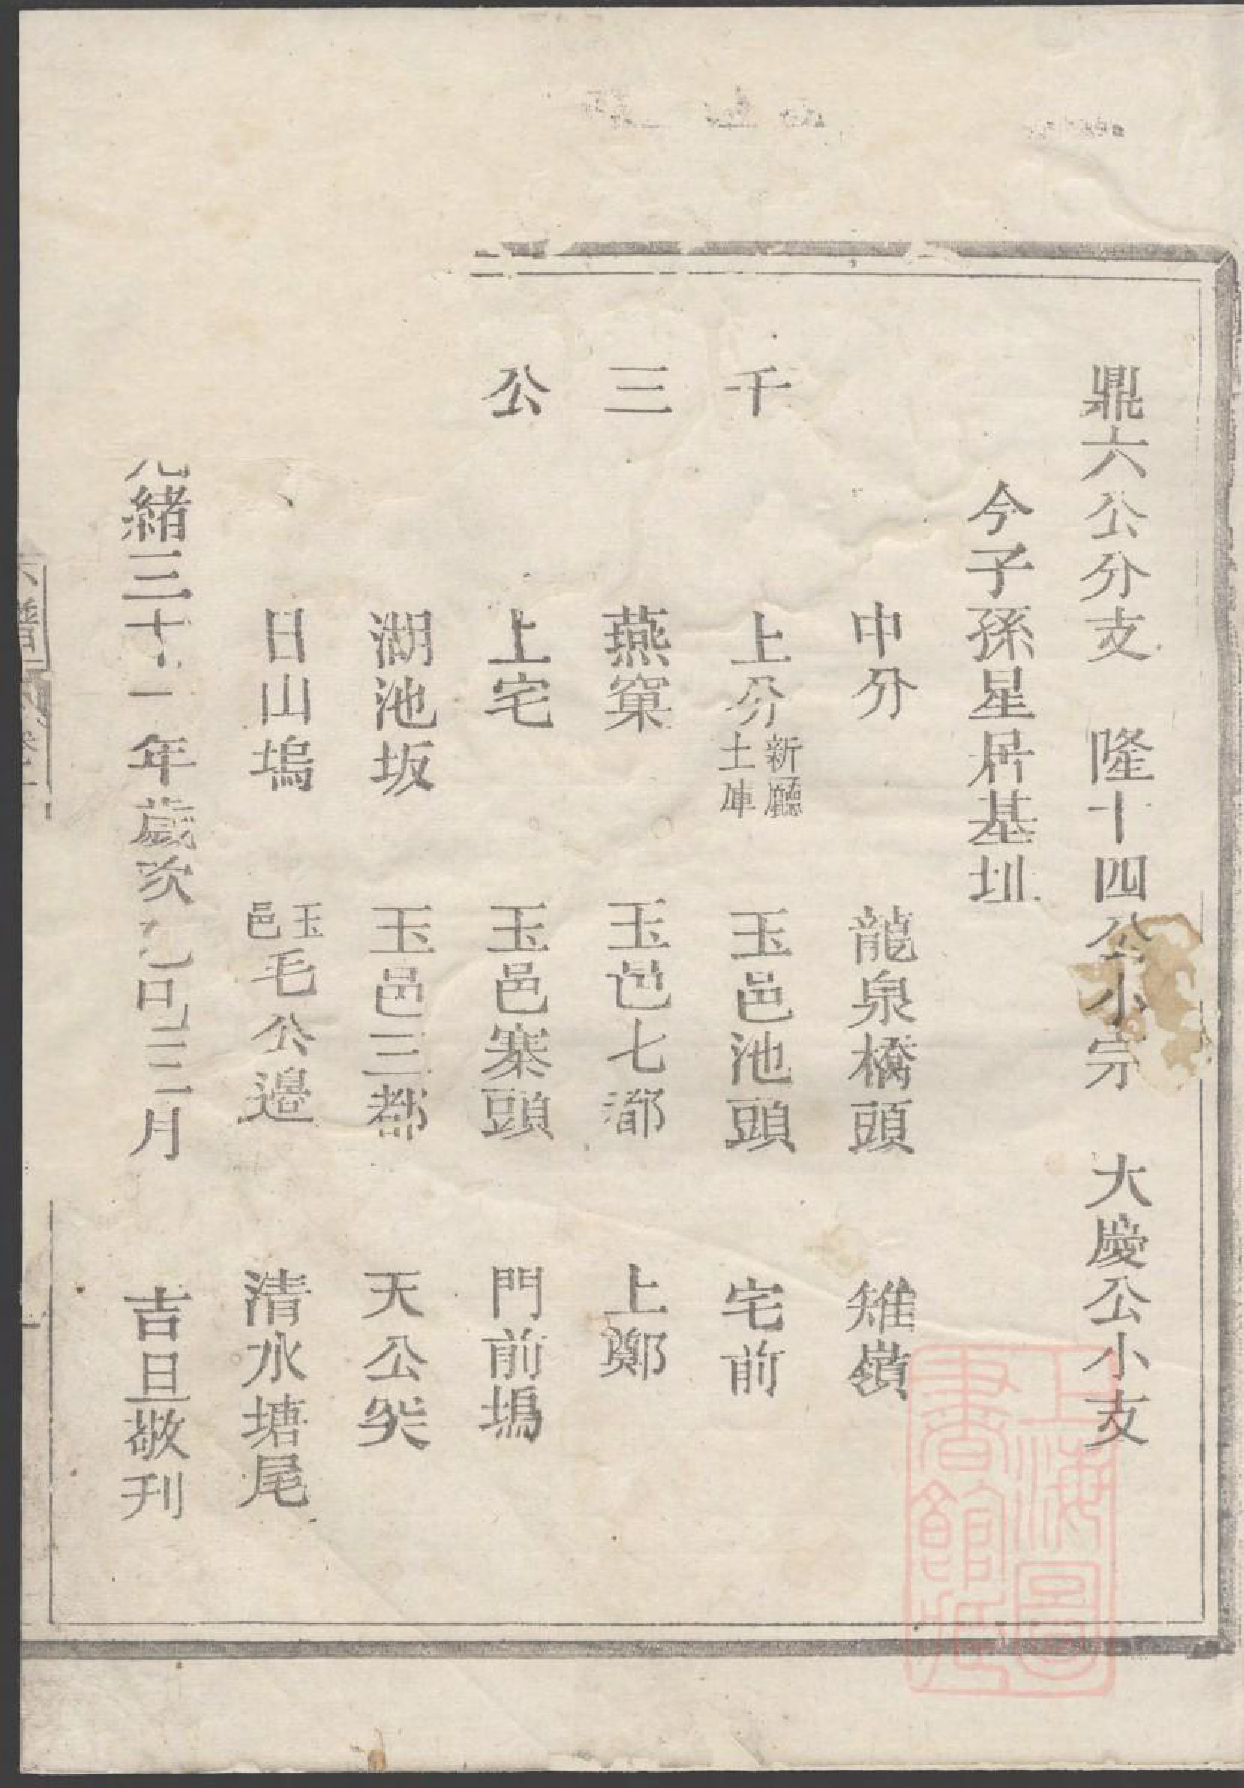 鼎六公分支　隆十四公小宗　大慶公小支
今子孫星居基圳
中分　龍泉橋頭　雉嶺
千　上分新廳土庫　玉邑池頭　宅前
三　燕窠　玉邑七都　上鄭
公　上宅　玉邑寨頭　門前塢
湖池坂　玉邑三都　天公㘭
日山塢　玉邑毛公邊　清水塘尾
光緒三十一年歲次乙巳三月　吉旦敬刊
上海圖書館藏